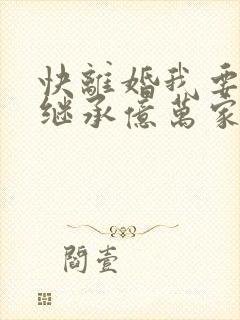 快離婚我要
继承億萬家
閻壹